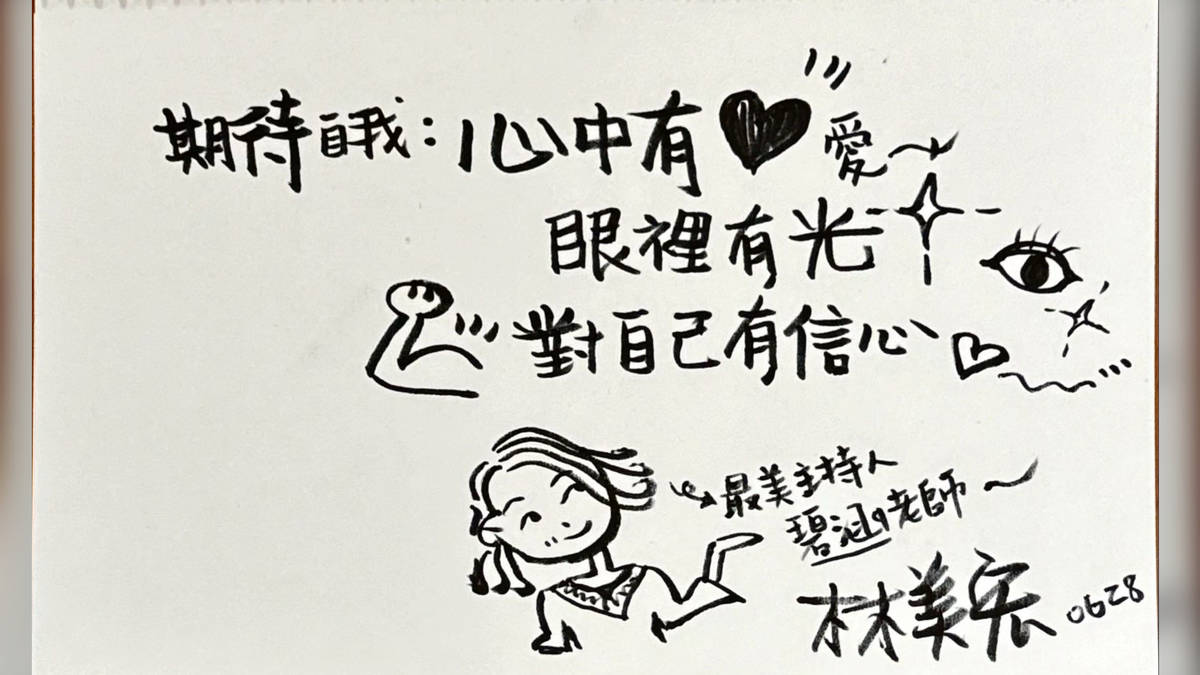 期待自我：心中有♥愛～
眼裡有光
對自己有信心
最美主持人
碧涵老師～
林美宏 0628